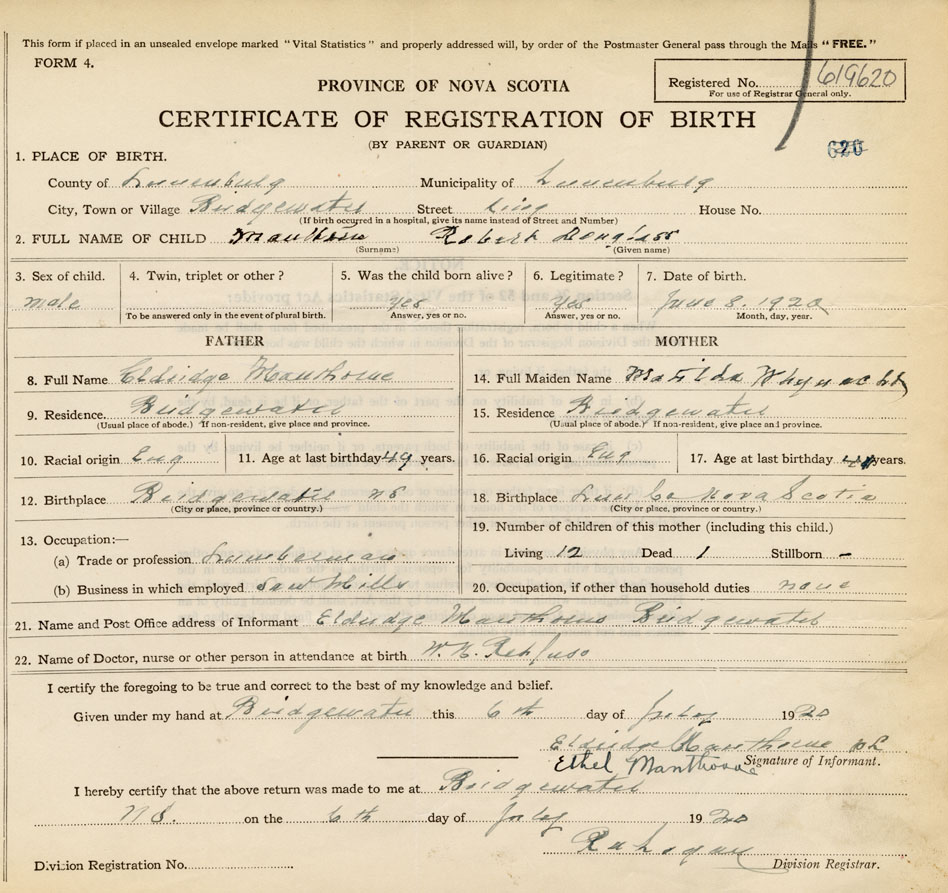 This form if placed in an unsealed envelope marked "Vital Statistics" and properly addressed will, by order of the Postmaster General pass through the Mails "FREE."
FORM 4.
PROVINCE OF NOVA SCOTIA
Registered No. 619620
For use of Registrar General only.
CERTIFICATE OF REGISTRATION OF BIRTH
(BY PARENT OR GUARDIAN)
620
1. PLACE OF BIRTH.
County of Lunenburg Municipality of Lunenburg
City, Town or Village Bridgewater Street King House No.
(If birth occurred in a hospital, give its name instead of Street and Number)
2. FULL NAME OF CHILD Manthorne Robert Douglass
(Surname) (Given name)
NOTICE
3. Sex of child. 4. Twin, triplet or other? 5. Was the child born alive? 6. Legitimate? 7. Date of birth.
male yes yes June 8. 1920
To be answered only in the event of plural birth. Answer, yes or no. Answer, yes or no. Month, day, year.
FATHER MOTHER
8. Full Name Eldridge Manthorne 14. Full Maiden Name Matilda
9. Residence. Bridgewater 15. Residence Bridgewater
(Usual place of abode.) If non-resident, give place and province. (Usual place of abode.) If non-resident, give place and province.
10. Racial origin Eng 11. Age at last birthday 49 years. 16. Racial origin Eng 17. Age at last birthday years.
12. Birthplace Bridgewater NS 18. Birthplace Lun Co Nova Scotia
(City or place, province or country.) (City or place, province or country.)
13. Occupation:— 19. Number of children of this mother (including this child.)
(a) Trade or profession Lumberman Living 12 Dead 1 Stillborn –
(b) Business in which employed Saw Mills 20. Occupation, if other than household duties none
21. Name and Post Office address of Informant Eldridge Manthorne Bridgewater
22. Name of Doctor, nurse or other person in attendance at birth W. H. Rehfuss
I certify the foregoing to be true and correct to the best of my knowledge and belief.
Given under my hand at Bridgewater this 6th day of July 1920
Eldridge Manthorne
Ethel Manthorne Signature of Informant.
I hereby certify that the above return was made to me at Bridgewater
N.S. on the 6th day of July 1920
Division Registration No. Division Registrar.